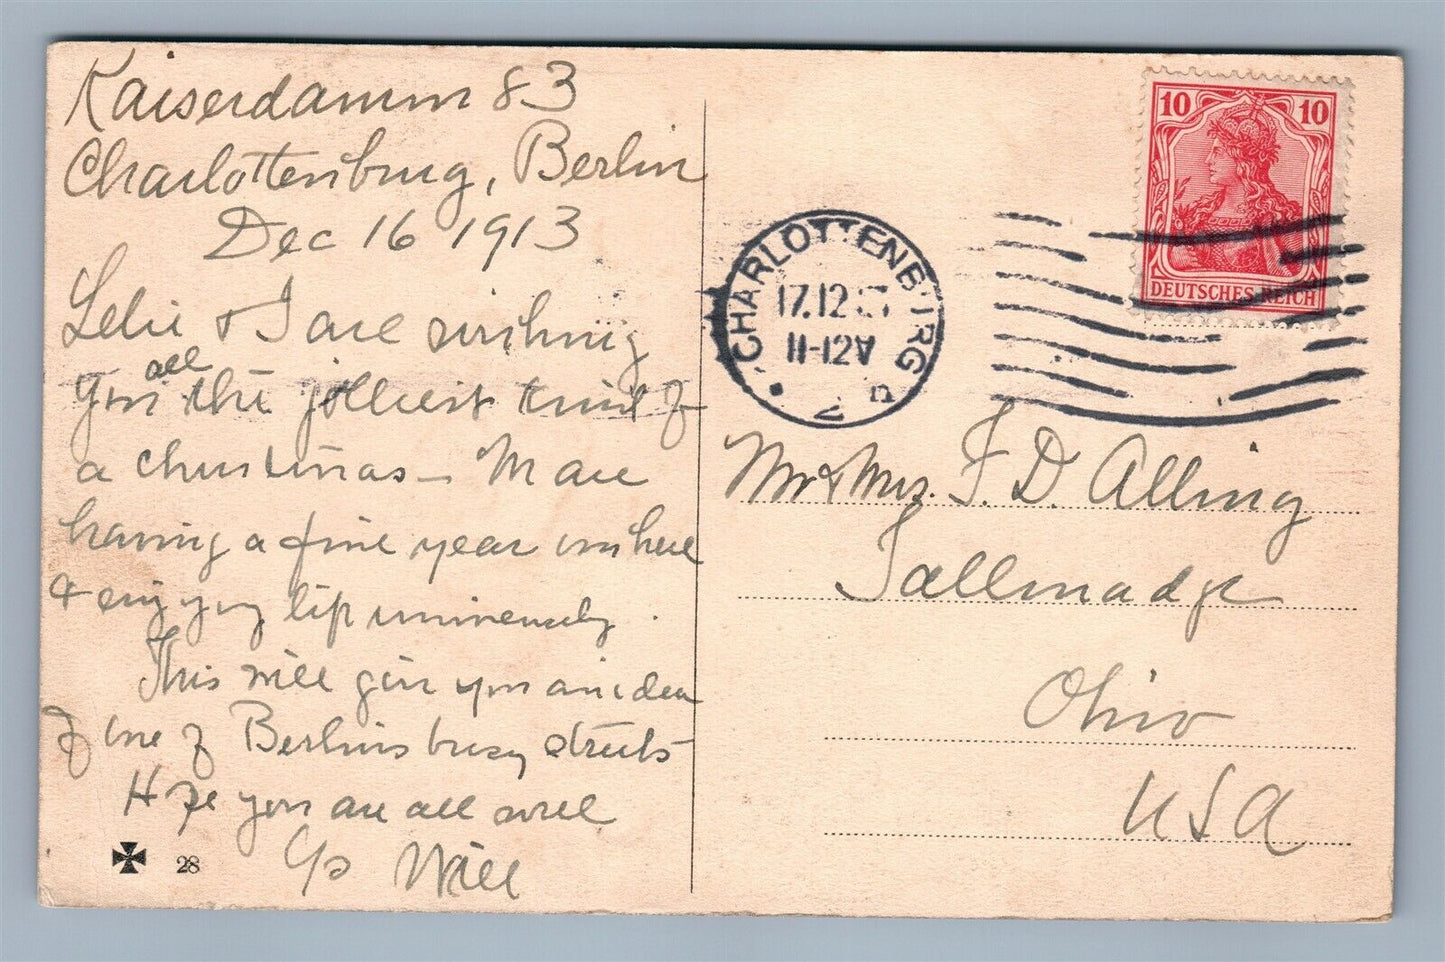 Kaiserdamm 83
Charlottenburg, Berlin
Dec 16 1913
& I are wishing
you all the jolliest kind of
a christmas – We are
having a fine year over here
& enjoying life immensely.
This will give you an idea
of one of Berlin's busy streets
Hope you are all well
Will
28
CHARLOTTENBURG
17.12
11-12V
10 10
DEUTSCHES REICH
Mr & Mrs. F. D. Alling
Tallmadge
Ohio
USA